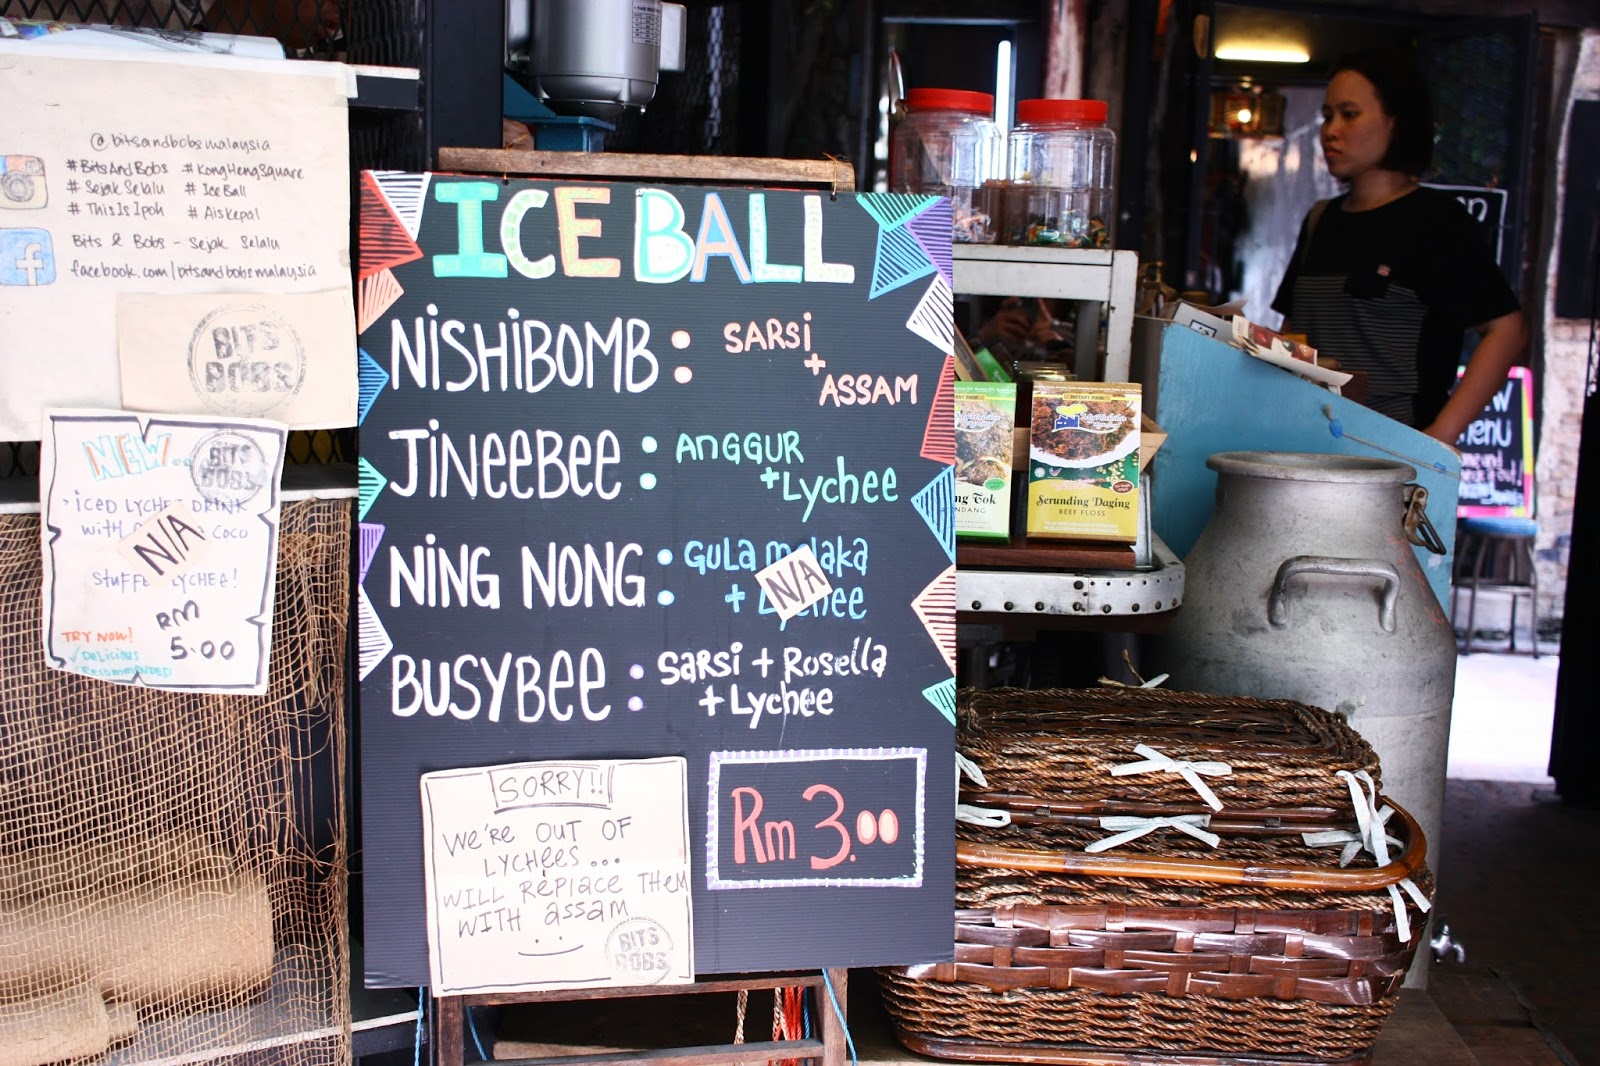 @bitsandbobsmalaysia
#BitsAndBobs #KongHengSquare
#SejakSelalu #IceBall
#ThisIsIpoh #Aiskepal
Bits & Bobs - Sejak Selalu
facebook.com/bitsandbobsmalaysia
BITS
BOBS
NEW..
BITS
BOBS
iced LYCHEE DRINK
with coco
N/A
stuffe LYCHEE!
RM
5.00
TRY NOW!
✓Delicious
✓Recommended
ICE BALL
NiSHiBOMB: SARSi
+
ASSAM
JiNeeBee: ANGGUR
+Lychee
NiNG NONG: GULA melaka
+ Lychee
N/A
BUSYBEE: SARSi + Rosella
+ Lychee
SORRY!!
We're OUT OF
LYCHEES...
WILL REPLACE THEM
WITH assam
BITS
BOBS
Rm 3.00
INSTANT FOOD
Serunding Daging
BEEF FLOSS
Tok
menu